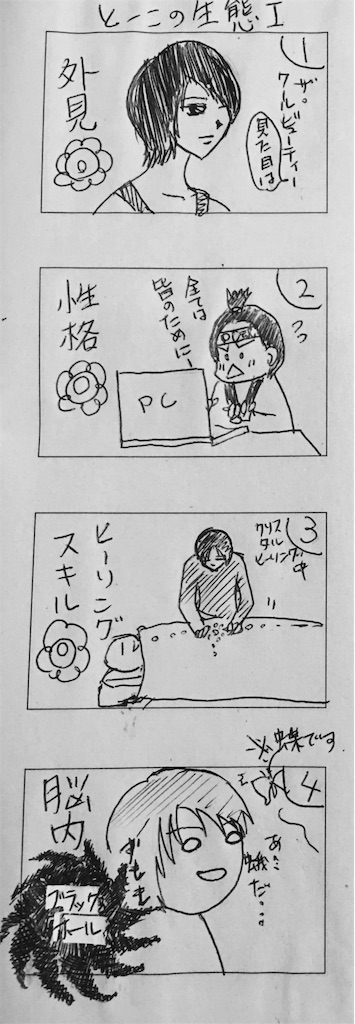 とーこの生態I
1
ザ。
クールビューティー
見た目は
外見
2
全ては
皆のためにー
性格
PC
3
クリス
タル
ヒーリング中
ヒーリング
スキル
4
※蝶です
あ、
蛾だ。。。
脳内
ブラック
ホール